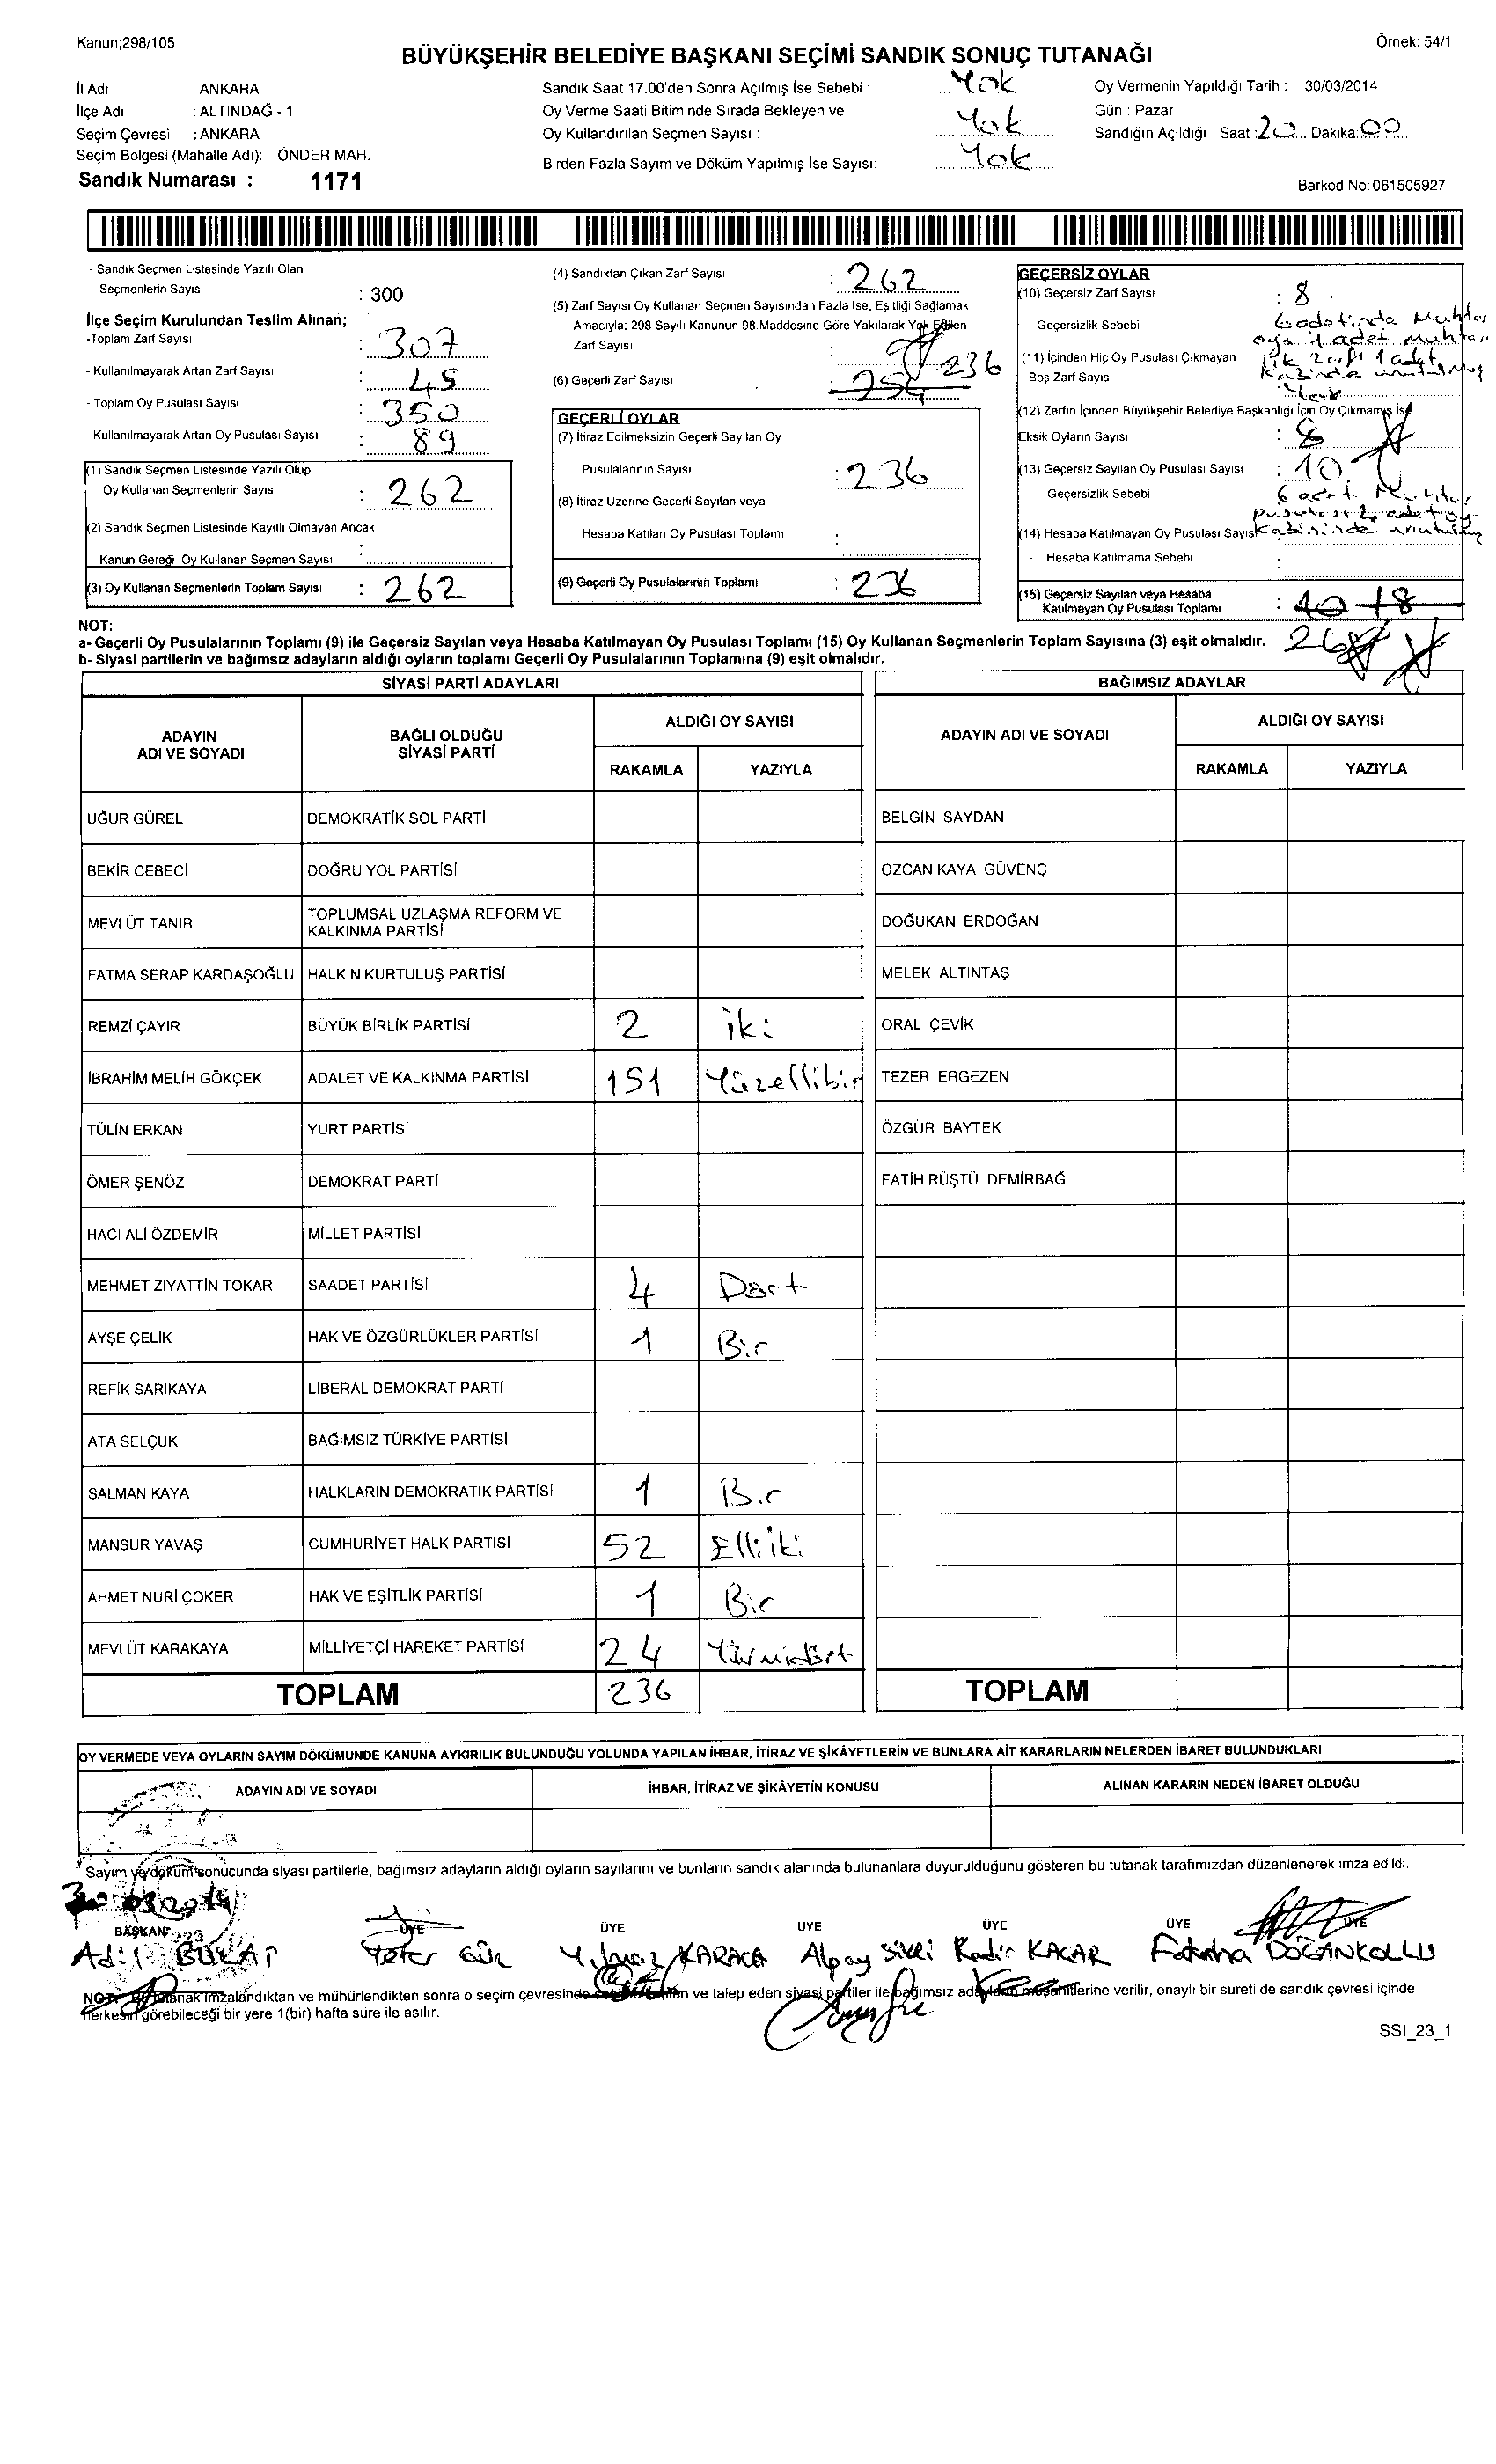 Kanun;298/105
Örnek: 54/1
BÜYÜKŞEHİR BELEDİYE BAŞKANI SEÇİMİ SANDIK SONUÇ TUTANAĞI
İl Adı : ANKARA
İlçe Adı : ALTINDAĞ - 1
Seçim Çevresi : ANKARA
Seçim Bölgesi (Mahalle Adı): ÖNDER MAH.
Sandık Numarası : 1171
Sandık Saat 17.00'den Sonra Açılmış İse Sebebi : Yok
Oy Verme Saati Bitiminde Sırada Bekleyen ve
Oy Kullandırılan Seçmen Sayısı : Yok
Birden Fazla Sayım ve Döküm Yapılmış İse Sayısı: Yok
Oy Vermenin Yapıldığı Tarih : 30/03/2014
Gün : Pazar
Sandığın Açıldığı Saat : 20 Dakika: 00
Barkod No:061505927
- Sandık Seçmen Listesinde Yazılı Olan
Seçmenlerin Sayısı : 300
İlçe Seçim Kurulundan Teslim Alınan;
-Toplam Zarf Sayısı : 307
- Kullanılmayarak Artan Zarf Sayısı : 45
- Toplam Oy Pusulası Sayısı : 350
- Kullanılmayarak Artan Oy Pusulası Sayısı : 89
(1) Sandık Seçmen Listesinde Yazılı Olup
Oy Kullanan Seçmenlerin Sayısı : 262
(2) Sandık Seçmen Listesinde Kayıtlı Olmayan Ancak
Kanun Gereği Oy Kullanan Seçmen Sayısı :
(3) Oy Kullanan Seçmenlerin Toplam Sayısı : 262
(4) Sandıktan Çıkan Zarf Sayısı : 262
(5) Zarf Sayısı Oy Kullanan Seçmen Sayısından Fazla İse, Eşitliği Sağlamak
Amacıyla; 298 Sayılı Kanunun 98.Maddesine Göre Yakılarak Yok Edilen
Zarf Sayısı :
(6) Geçerli Zarf Sayısı : 254 236
GEÇERLİ OYLAR
(7) İtiraz Edilmeksizin Geçerli Sayılan Oy
Pusulalarının Sayısı : 236
(8) İtiraz Üzerine Geçerli Sayılan veya
Hesaba Katılan Oy Pusulası Toplamı :
(9) Geçerli Oy Pusulalarının Toplamı : 236
GEÇERSİZ OYLAR
(10) Geçersiz Zarf Sayısı : 8
- Geçersizlik Sebebi
(11) İçinden Hiç Oy Pusulası Çıkmayan
Boş Zarf Sayısı
(12) Zarfın İçinden Büyükşehir Belediye Başkanlığı İçin Oy Çıkmamış İse
Eksik Oyların Sayısı : 8
(13) Geçersiz Sayılan Oy Pusulası Sayısı : 10
- Geçersizlik Sebebi 6 adet
(14) Hesaba Katılmayan Oy Pusulası Sayısı
- Hesaba Katılmama Sebebi :
(15) Geçersiz Sayılan veya Hesaba
Katılmayan Oy Pusulası Toplamı :
NOT:
a- Geçerli Oy Pusulalarının Toplamı (9) ile Geçersiz Sayılan veya Hesaba Katılmayan Oy Pusulası Toplamı (15) Oy Kullanan Seçmenlerin Toplam Sayısına (3) eşit olmalıdır.
b- Siyasi partilerin ve bağımsız adayların aldığı oyların toplamı Geçerli Oy Pusulalarının Toplamına (9) eşit olmalıdır.
SİYASİ PARTİ ADAYLARI
ADAYIN ADI VE SOYADI BAĞLI OLDUĞU SİYASİ PARTİ ALDIĞI OY SAYISI
RAKAMLA YAZIYLA
UĞUR GÜREL DEMOKRATİK SOL PARTİ
BEKİR CEBECİ DOĞRU YOL PARTİSİ
MEVLÜT TANIR TOPLUMSAL UZLAŞMA REFORM VE KALKINMA PARTİSİ
FATMA SERAP KARDAŞOĞLU HALKIN KURTULUŞ PARTİSİ
REMZİ ÇAYIR BÜYÜK BİRLİK PARTİSİ 2 iki
İBRAHİM MELİH GÖKÇEK ADALET VE KALKINMA PARTİSİ 151 Yüzellibir
TÜLİN ERKAN YURT PARTİSİ
ÖMER ŞENÖZ DEMOKRAT PARTİ
HACI ALİ ÖZDEMİR MİLLET PARTİSİ
MEHMET ZİYATTİN TOKAR SAADET PARTİSİ 4 Dört
AYŞE ÇELİK HAK VE ÖZGÜRLÜKLER PARTİSİ 1 Bir
REFİK SARIKAYA LİBERAL DEMOKRAT PARTİ
ATA SELÇUK BAĞIMSIZ TÜRKİYE PARTİSİ
SALMAN KAYA HALKLARIN DEMOKRATİK PARTİSİ 1 Bir
MANSUR YAVAŞ CUMHURİYET HALK PARTİSİ 52 Elliiki
AHMET NURİ ÇOKER HAK VE EŞİTLİK PARTİSİ 1 Bir
MEVLÜT KARAKAYA MİLLİYETÇİ HAREKET PARTİSİ 24 Yirmidört
TOPLAM 236
BAĞIMSIZ ADAYLAR
ADAYIN ADI VE SOYADI ALDIĞI OY SAYISI
RAKAMLA YAZIYLA
BELGİN SAYDAN
ÖZCAN KAYA GÜVENÇ
DOĞUKAN ERDOĞAN
MELEK ALTINTAŞ
ORAL ÇEVİK
TEZER ERGEZEN
ÖZGÜR BAYTEK
FATİH RÜŞTÜ DEMİRBAĞ
TOPLAM
OY VERMEDE VEYA OYLARIN SAYIM DÖKÜMÜNDE KANUNA AYKIRILIK BULUNDUĞU YOLUNDA YAPILAN İHBAR, İTİRAZ VE ŞİKÂYETLERİN VE BUNLARA AİT KARARLARIN NELERDEN İBARET BULUNDUKLARI
ADAYIN ADI VE SOYADI İHBAR, İTİRAZ VE ŞİKÂYETİN KONUSU ALINAN KARARIN NEDEN İBARET OLDUĞU
Sayım ve döküm sonucunda siyasi partilerle, bağımsız adayların aldığı oyların sayılarını ve bunların sandık alanında bulunanlara duyurulduğunu gösteren bu tutanak tarafımızdan düzenlenerek imza edildi.
BAŞKAN ÜYE ÜYE ÜYE ÜYE ÜYE ÜYE
Adil BULAT Yeter GÜL Yılmaz KARACA Alpay Sivri Kadir KAÇAR Fatma DOĞANKOLLU
NOT: Bu tutanak imzalandıktan ve mühürlendikten sonra o seçim çevresinde ve talep eden siyasi partiler ile bağımsız adayların müşahitlerine verilir, onaylı bir sureti de sandık çevresi içinde
herkesin görebileceği bir yere 1(bir) hafta süre ile asılır.
SSI_23_1